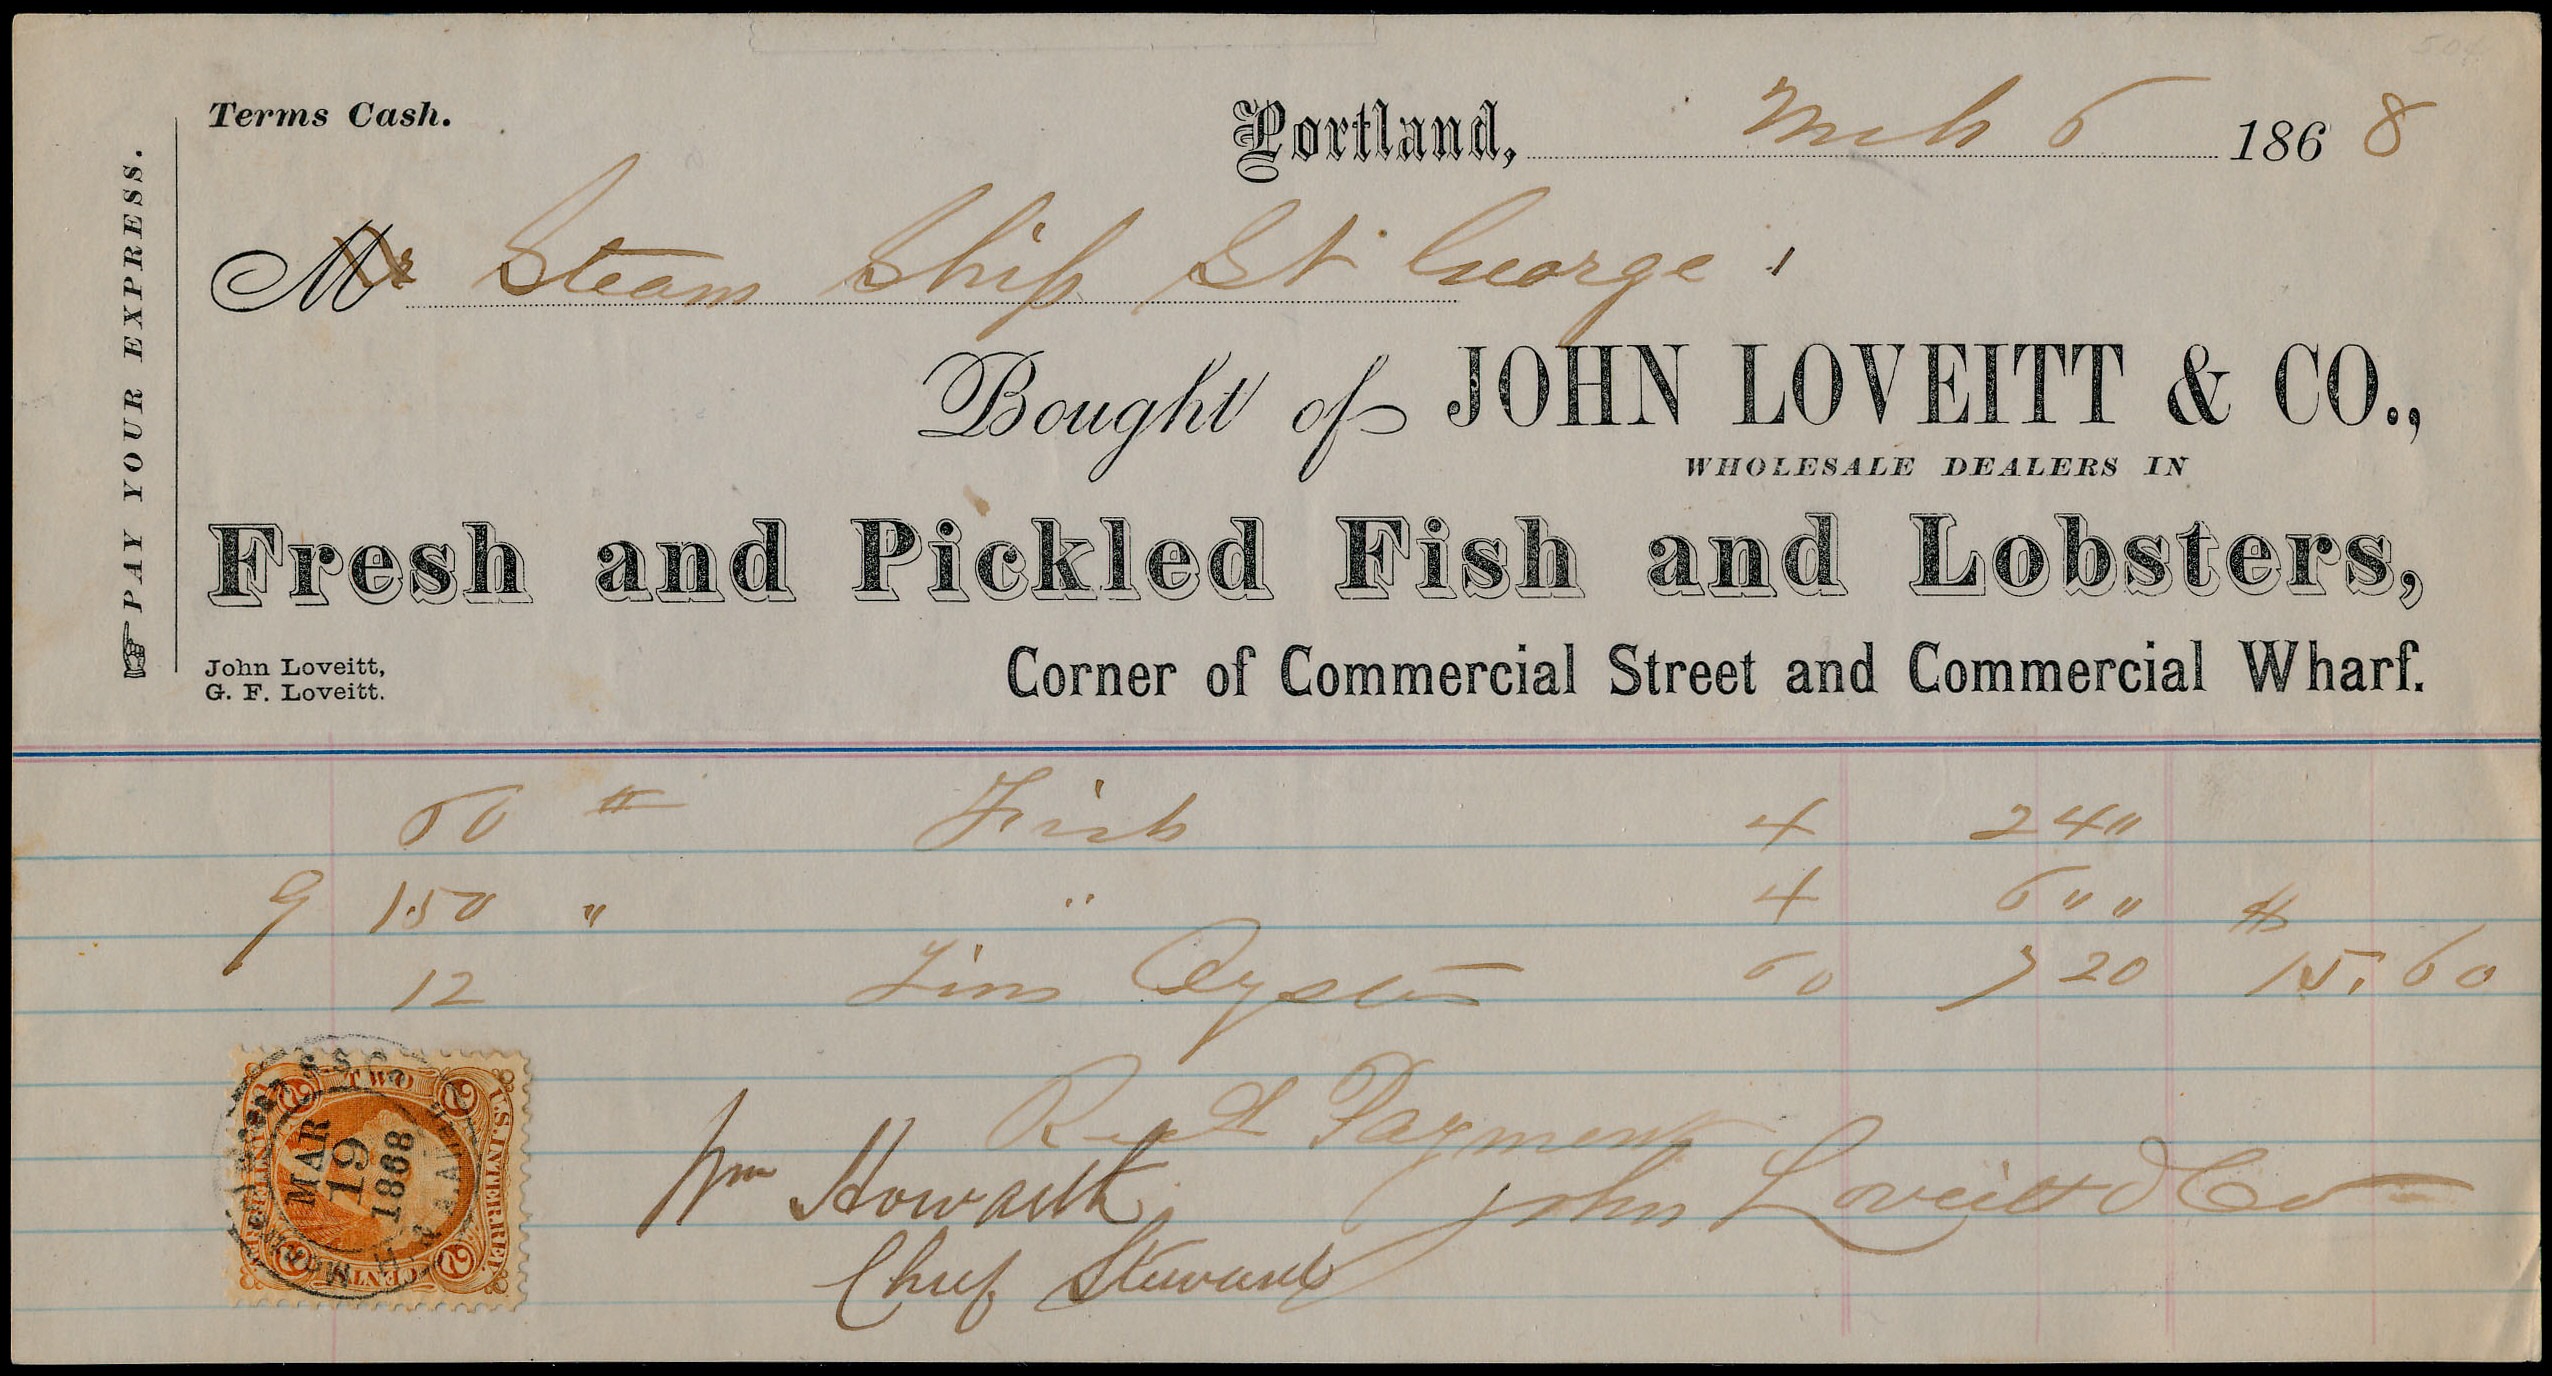 Terms Cash.
Portland, Mch 6 1868
Mr Steam Ship St George
Bought of JOHN LOVEITT & CO.,
WHOLESALE DEALERS IN
Fresh and Pickled Fish and Lobsters,
Corner of Commercial Street and Commercial Wharf.
John Loveitt,
G. F. Loveitt.
PAY YOUR EXPRESS.
60 # Fish 4 2 4 0 "
150 " " 4 6 " "
12 Tins Oysters 60 7 20 $ 15.60
Recd Payment
John Loveitt & Co
Wm Howarth
Chief Steward
TWO
2 2
U.S. INTER. REV.
MAR
19
1868
2 2
CENTS